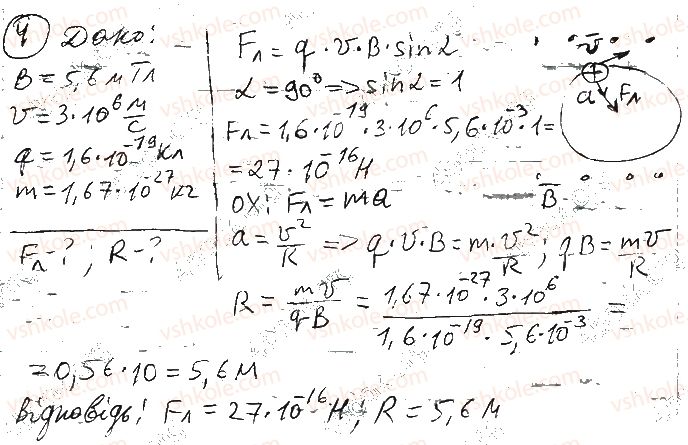 4 Дано:
B = 5,6 мТл
v = 3·10⁶ м/с
q = 1,6·10⁻¹⁹ Кл
m = 1,67·10⁻²⁷ кг
Fл - ? ; R - ?
Fл = q·v·B·sinα
α = 90° => sinα = 1
Fл = 1,6·10⁻¹⁹·3·10⁶·5,6·10⁻³·1 =
= 27·10⁻¹⁶ Н
OX: Fл = ma
a = v²/R => q·v·B = m·v²/R ; qB = mv/R
R = mv/qB = 1,67·10⁻²⁷·3·10⁶/1,6·10⁻¹⁹·5,6·10⁻³ =
= 0,56·10 = 5,6 м
Відповідь: Fл = 27·10⁻¹⁶ Н; R = 5,6 м
v
+
a Fл
B
vshkole.com